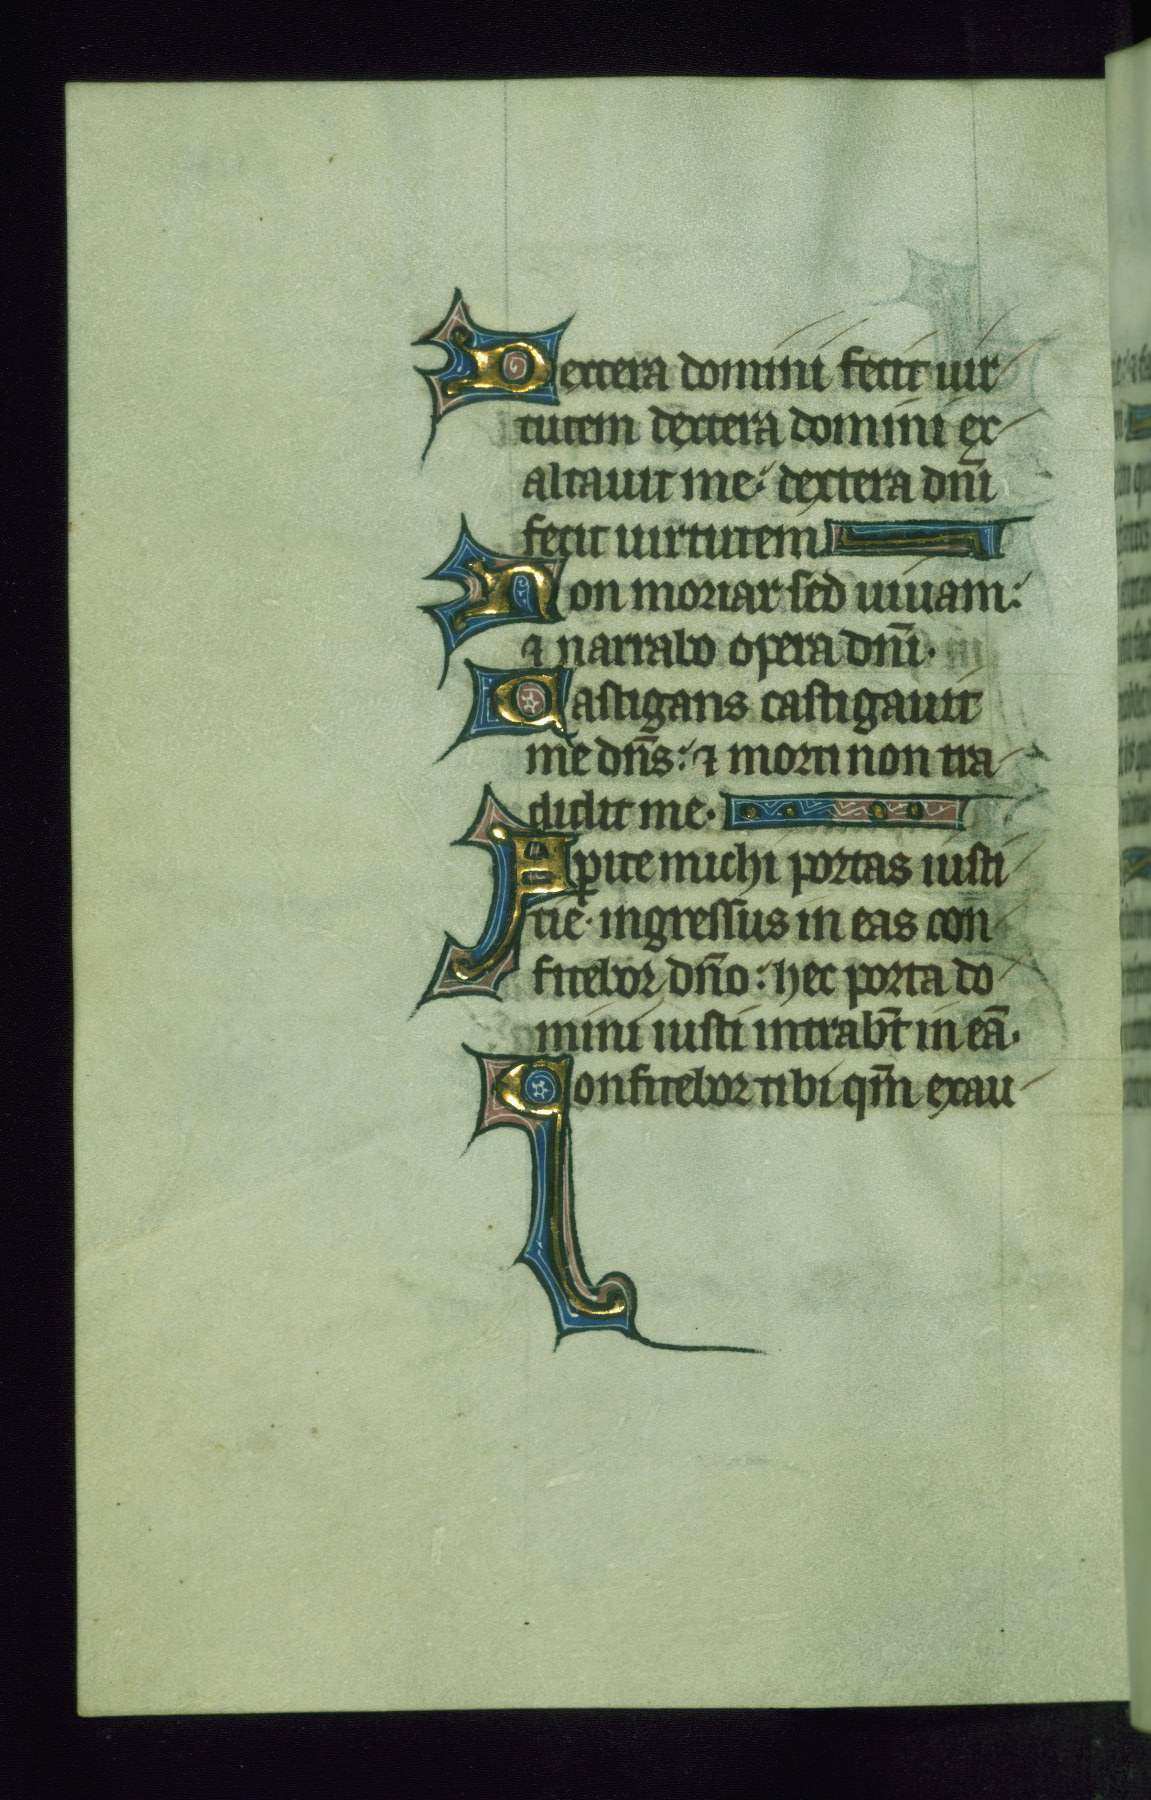 Dextera domini fecit uir
tutem dextera domini ex
altauit me: dextera dn̄i
fecit uirtutem
Non moriar sed uiuam:
⁊ narrabo opera dn̄i.
Castigans castigauit
me dn̄s: ⁊ morti non tra
didit me.
Aꝑite michi portas iusti
tie. ingressus in eas con
fitebor dn̄o: hec porta do
mini iusti intrab̄t in eā.
Confitebor tibi qm̄ exau